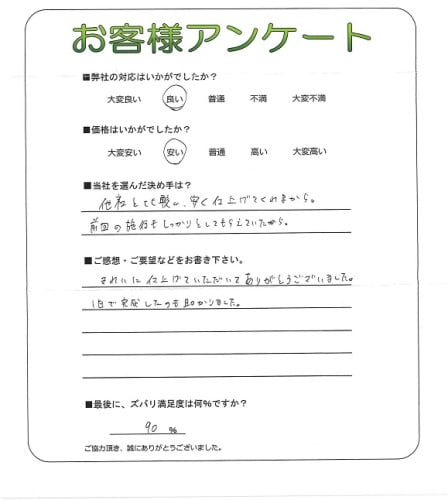 お客様アンケート
■弊社の対応はいかがでしたか？
大変良い 良い 普通 不満 大変不満
■価格はいかがでしたか？
大変安い 安い 普通 高い 大変高い
■当社を選んだ決め手は？
他社とも比較し、安く仕上げてくれるから。
前回の施行もしっかりとしてもらえていたから。
■ご感想・ご要望などをお書き下さい。
きれいに仕上げていただいてありがとうございました。
1日で完成したのも助かりました。
■最後に、ズバリ満足度は何%ですか？
90 %
ご協力頂き、誠にありがとうございました。